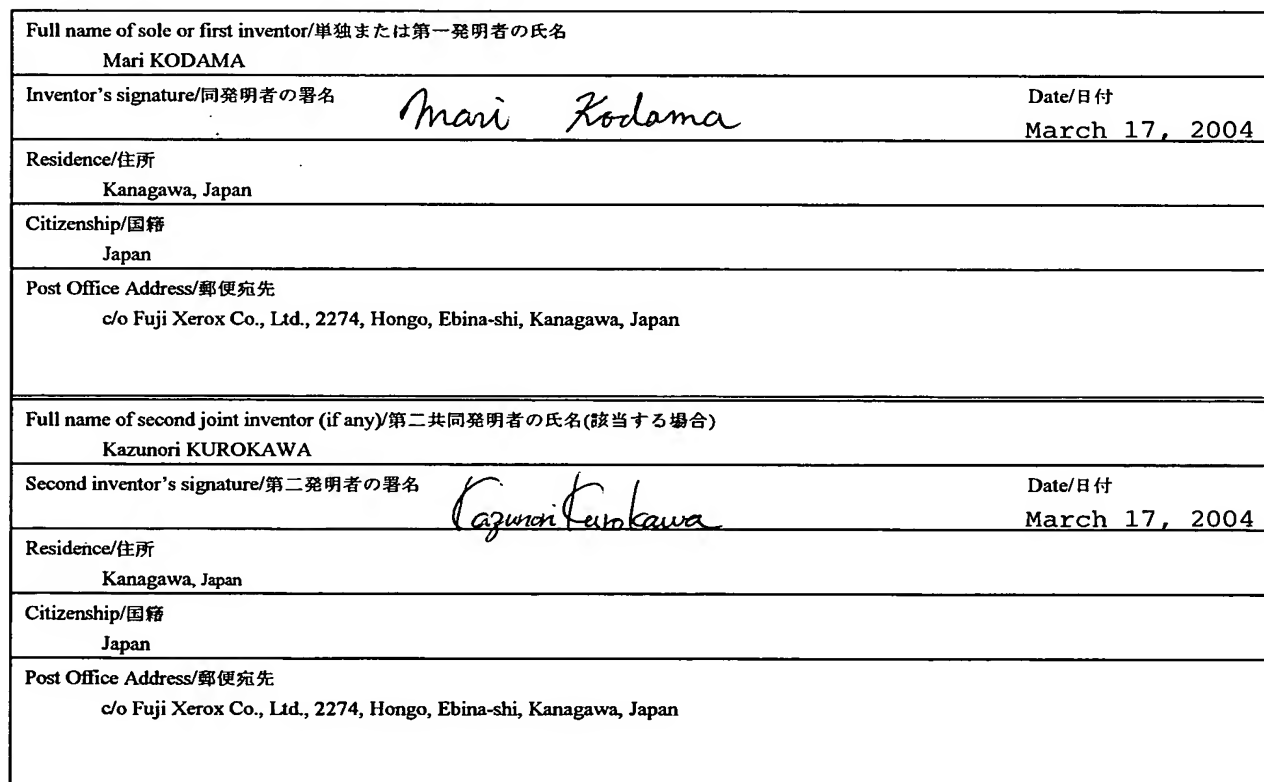 Full name of sole or first inventor/単独または第一発明者の氏名
Mari KODAMA
Inventor's signature/同発明者の署名 Mari Kodama Date/日付
March 17, 2004
Residence/住所
Kanagawa, Japan
Citizenship/国籍
Japan
Post Office Address/郵便宛先
c/o Fuji Xerox Co., Ltd., 2274, Hongo, Ebina-shi, Kanagawa, Japan
Full name of second joint inventor (if any)/第二共同発明者の氏名(該当する場合)
Kazunori KUROKAWA
Second inventor's signature/第二発明者の署名 Kazunori Kurokawa Date/日付
March 17, 2004
Residence/住所
Kanagawa, Japan
Citizenship/国籍
Japan
Post Office Address/郵便宛先
c/o Fuji Xerox Co., Ltd., 2274, Hongo, Ebina-shi, Kanagawa, Japan